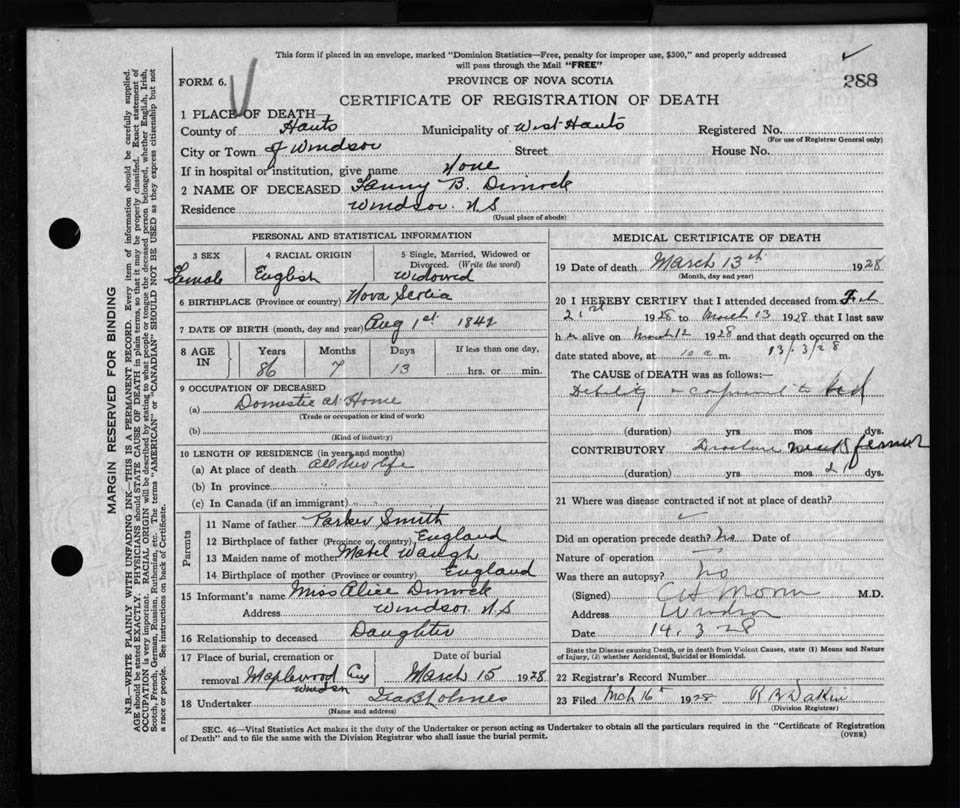 This form if placed in an envelope, marked "Dominion Statistics—Free, penalty for improper use, $300," and properly addressed
will pass through the Mail "FREE"
288
FORM 6.
PROVINCE OF NOVA SCOTIA
CERTIFICATE OF REGISTRATION OF DEATH
1 PLACE OF DEATH—
County of Hants Municipality of West Hants Registered No.
(For use of Registrar General only)
City or Town of Windsor Street House No.
If in hospital or institution, give name None
2 NAME OF DECEASED Fanny B. Dimock
Residence Windsor. N.S
(Usual place of abode)
PERSONAL AND STATISTICAL INFORMATION
3 SEX 4 RACIAL ORIGIN 5 Single, Married, Widowed or
Divorced. (Write the word)
Female English Widowed
6 BIRTHPLACE (Province or country) Nova Scotia
7 DATE OF BIRTH (month, day and year) Aug 1st. 1842
8 AGE IN Years Months Days If less than one day,
86 7 13 hrs. or min.
9 OCCUPATION OF DECEASED
(a) Domestic at Home
(Trade or occupation or kind of work)
(b)
(Kind of industry)
10 LENGTH OF RESIDENCE (in years and months)
(a) At place of death all her life
(b) In province
(c) In Canada (if an immigrant)
Parents
11 Name of father Parker Smith
12 Birthplace of father (Province or country) England
13 Maiden name of mother Mabel Waugh
14 Birthplace of mother (Province or country) England
15 Informant's name Miss Alice Dimock
Address Windsor. N.S
16 Relationship to deceased Daughter
17 Place of burial, cremation or Date of burial
removal Maplewood Cem Windsor March 15 1928
18 Undertaker
(Name and address)
MEDICAL CERTIFICATE OF DEATH
19 Date of death March 13th 1928
(Month, day and year)
20 I HEREBY CERTIFY that I attended deceased from Feb
21st 1928 to March 13 1928 that I last saw
h er alive on March 12 1928 and that death occurred on the
date stated above, at 10 a m. 13/3/28
The CAUSE of DEATH was as follows:—
Debility + confinement to bed
(duration) yrs mos dys.
CONTRIBUTORY Fracture neck femur
(duration) yrs. mos dys.
21 Where was disease contracted if not at place of death?
Did an operation precede death? No Date of
Nature of operation
Was there an autopsy? No
(Signed) M.D.
Address Windsor
Date 14.3.28
State the Disease causing Death, or in death from Violent Causes, state (1) Means and Nature
of Injury, (2) whether Accidental, Suicidal or Homicidal.
22 Registrar's Record Number
23 Filed Mch 16 1928
(Division Registrar)
SEC. 46—Vital Statistics Act makes it the duty of the Undertaker or person acting as Undertaker to obtain all the particulars required in the "Certificate of Registration
of Death" and to file the same with the Division Registrar who shall issue the burial permit.
(OVER)
MARGIN RESERVED FOR BINDING
N.B.—WRITE PLAINLY WITH UNFADING INK—THIS IS A PERMANENT RECORD. Every item of information should be carefully supplied.
AGE should be stated EXACTLY. PHYSICIANS should STATE CAUSE OF DEATH in plain terms, so that it may be properly classified. Exact statement of
OCCUPATION is very important. RACIAL ORIGIN will be described by stating to what people or tongue the deceased person belonged, whether English, Irish,
Scotch, French, German, Russian, Ruthenian, etc. The terms "AMERICAN" or "CANADIAN" SHOULD NOT BE USED as they express citizenship but not
a race or people. See instructions on back of Certificate.